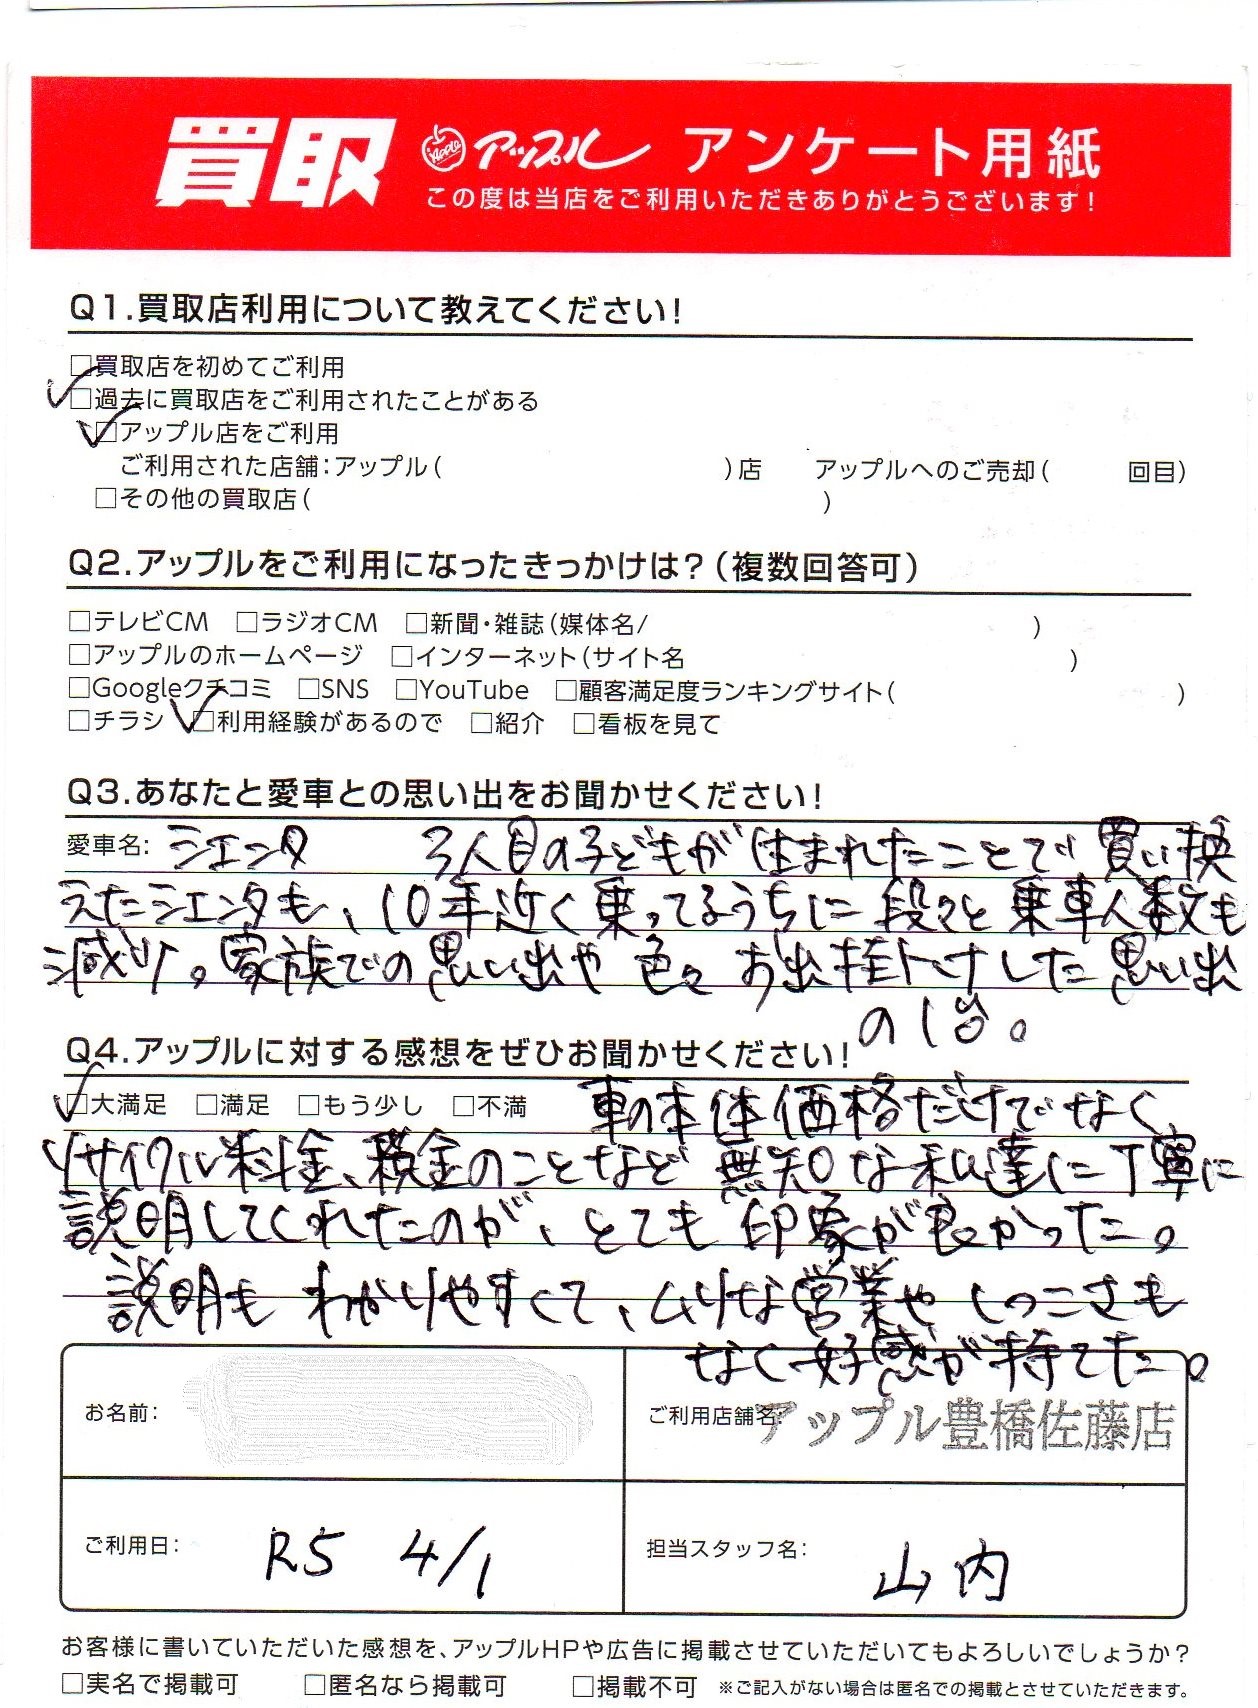 買取 Apple アップル アンケート用紙
この度は当店をご利用いただきありがとうございます!
Q1.買取店利用について教えてください!
□買取店を初めてご利用
☑過去に買取店をご利用されたことがある
☑アップル店をご利用
ご利用された店舗:アップル( )店 アップルへのご売却( 回目)
□その他の買取店( )
Q2.アップルをご利用になったきっかけは?(複数回答可)
□テレビCM □ラジオCM □新聞・雑誌(媒体名/ )
□アップルのホームページ □インターネット(サイト名 )
□Googleクチコミ □SNS □YouTube □顧客満足度ランキングサイト( )
□チラシ ☑利用経験があるので □紹介 □看板を見て
Q3.あなたと愛車との思い出をお聞かせください!
愛車名: シエンタ 3人目の子どもが生まれたことで買い換
えたシエンタも、10年近く乗ってるうちに段々と乗車人数も
減少。家族での思い出や色々お出掛けした思い出
の1台。
Q4.アップルに対する感想をぜひお聞かせください!
☑大満足 □満足 □もう少し □不満 車の本体価格だけでなく、
リサイクル料金、税金のことなど無知な私達に丁寧に
説明してくれたのが、とても印象が良かった。
説明もわかりやすくて、ムリな営業やしつこさも
なく好感が持てた。
お名前:
ご利用店舗名: アップル豊橋佐藤店
ご利用日: R5 4/1
担当スタッフ名: 山内
お客様に書いていただいた感想を、アップルHPや広告に掲載させていただいてもよろしいでしょうか?
□実名で掲載可 □匿名なら掲載可 □掲載不可 ※ご記入がない場合は匿名での掲載とさせていただきます。